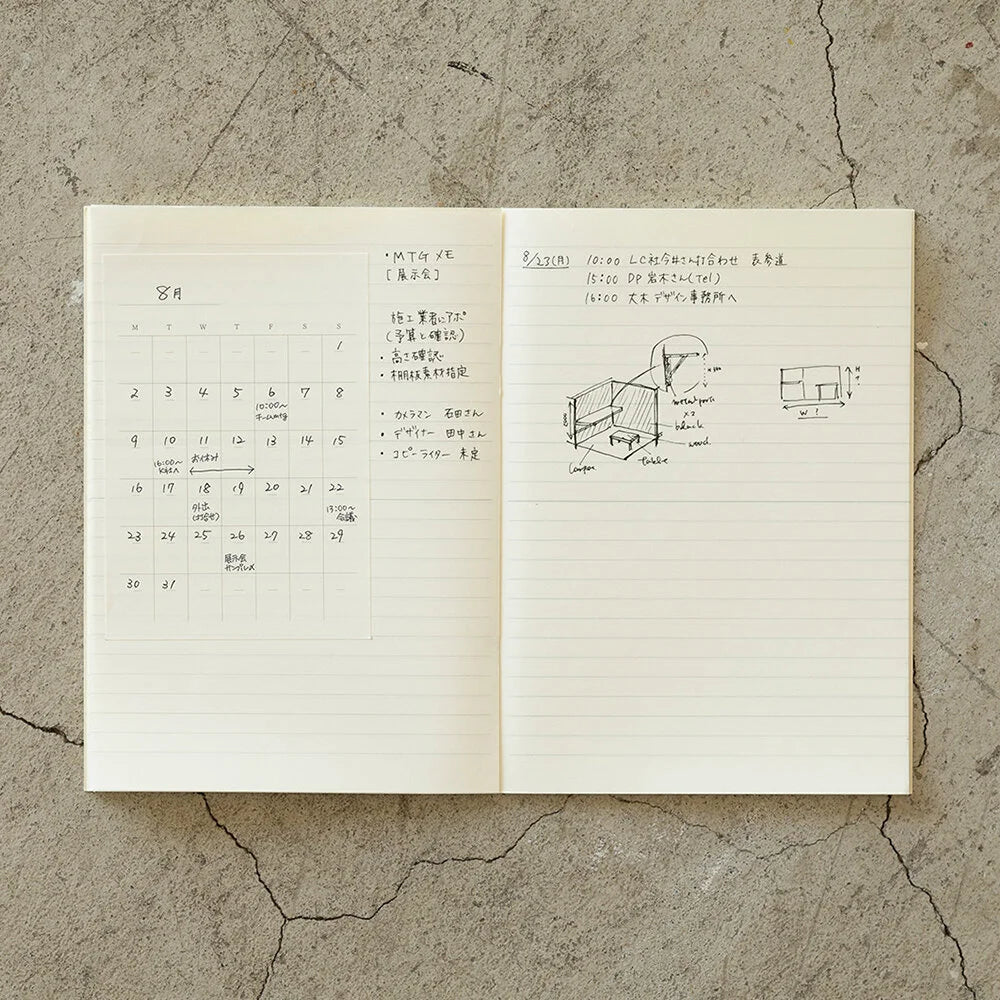 8月
M T W T F S S
1
2 3 4 5 6 7 8
10:00〜
チームmtg
9 10 11 12 13 14 15
16:00〜
K社へ
お休み
16 17 18 19 20 21 22
外出
(打合せ)
13:00〜
会議
23 24 25 26 27 28 29
展示会
サンプル〆
30 31
・MTG メモ
[展示会]
施工業者にアポ
(予算と確認)
・高さ確認
・棚板素材指定
・カメラマン 石田さん
・デザイナー 田中さん
・コピーライター 未定
8/23(月) 10:00 LC社今井さん打合わせ 表参道
15:00 DP 岩木さん(Tel)
16:00 大木デザイン事務所へ
x2
black
wood
table
H
?
W ?